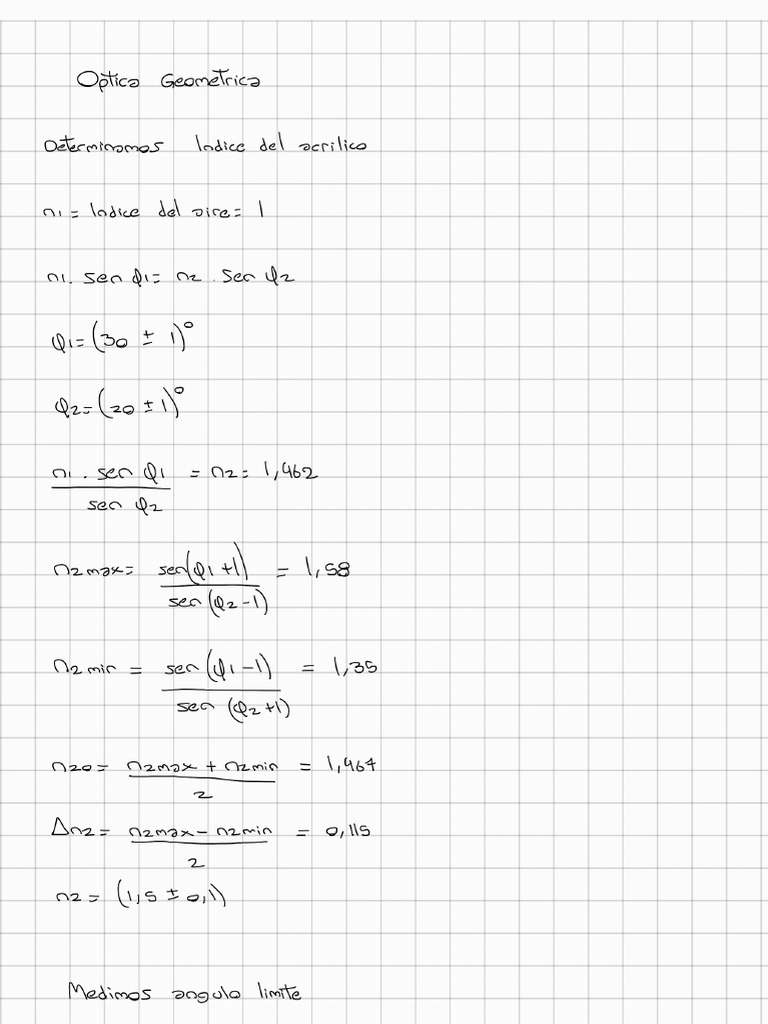 Optica Geometrica
Determinamos Indice del acrilico
n1 = Indice del aire = 1
n1. sen φ1 = n2 . sen φ2
φ1 = (30 ± 1)°
φ2 = (20 ± 1)°
n1 . sen φ1 / sen φ2 = n2 = 1,462
n2max = sen(φ1 + 1) / sen(φ2 - 1) = 1,58
n2min = sen(φ1 - 1) / sen(φ2 + 1) = 1,35
n20 = n2max + n2min / 2 = 1,464
Δn2 = n2max - n2min / 2 = 0,115
n2 = (1,5 ± 0,1)
Medimos angulo limite